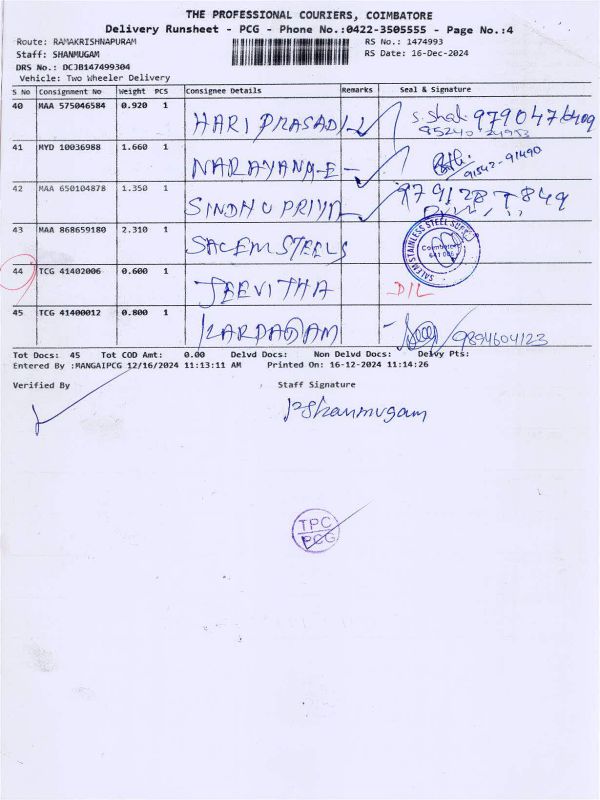 THE PROFESSIONAL COURIERS, COIMBATORE
Delivery Runsheet - PCG - Phone No.:0422-3505555 - Page No.:4
Route: RAMAKRISHNAPURAM RS No.: 1474993
Staff: SHANMUGAM RS Date: 16-Dec-2024
DRS No.: DCJB147499304
Vehicle: Two Wheeler Delivery
S No Consignment No Weight PCS Consignee Details Remarks Seal & Signature
40 MAA 575046584 0.920 1 HARI PRASAD
41 MYD 10036988 1.660 1 NARAYANA-E 91542-91490
42 MAA 650104878 1.350 1 SINDHU PRIYA
43 MAA 868659180 2.310 1 SALEM STEELS SALEM STAINLESS STEEL Coimbatore
44 TCG 41402006 0.600 1 JEEVITHA DIL
45 TCG 41400012 0.800 1 KARPAGAM 9894604123
Tot Docs: 45 Tot COD Amt: 0.00 Delvd Docs: Non Delvd Docs: Delvy Pts:
Entered By :MANGAIPCG 12/16/2024 11:13:11 AM Printed On: 16-12-2024 11:14:26
Verified By Staff Signature
P.Shanmugam
TPC
PCG